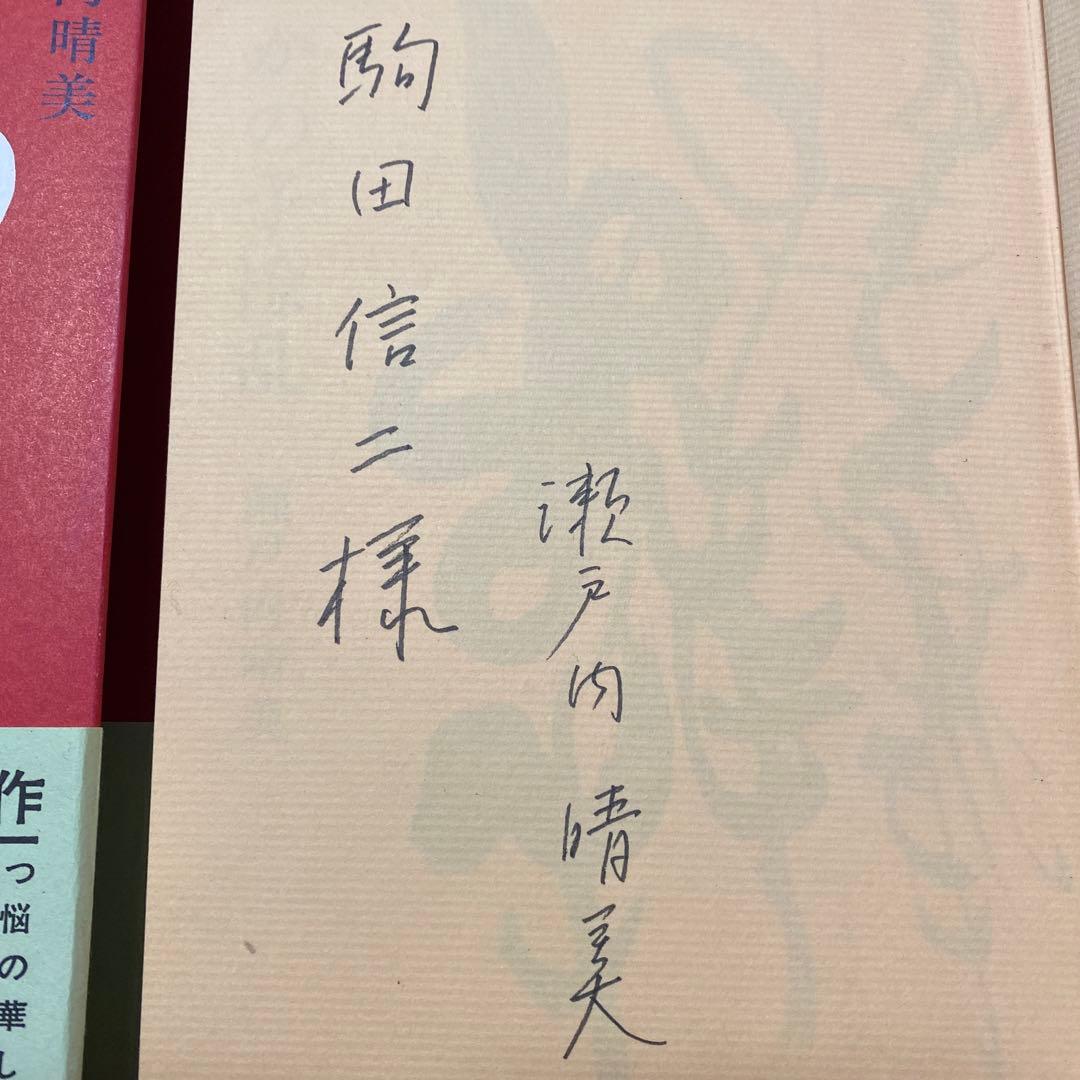 駒田信二様
瀬戸内晴美
内晴美
作
つ悩の華し